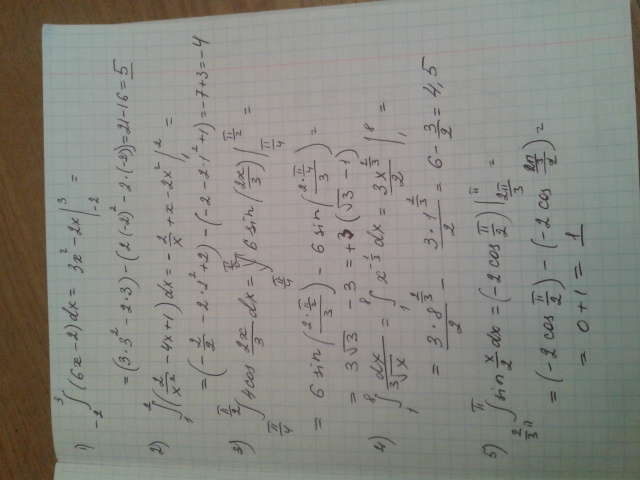 1) ∫₋₂³ (6x-2)dx = 3x² - 2x |₋₂³ =
= (3·3² - 2·3) - (2(-2)² - 2·(-2)) = 21-16 = 5
2) ∫₁² (2/x² - 4x + 1)dx = -2/x + x - 2x² |₁² =
= (-2/2 - 2·2² + 2) - (-2 - 2·1² + 1) = -7+3 = -4
3) ∫_{π/4}^{π/2} 4cos 2x/3 dx = 6 sin(2x/3) |_{π/4}^{π/2} =
= 6 sin((2·π/2)/3) - 6 sin((2·π/4)/3) =
= 3√3 - 3 = +3(√3 - 1)
4) ∫₁⁸ dx/∛x = ∫₁⁸ x^{-1/3} dx = 3x^{2/3}/2 |₁⁸ =
= 3·8^{2/3}/2 - 3·1^{2/3}/2 = 6 - 3/2 = 4,5
5) ∫_{2/3 π}^{π} sin x/2 dx = (-2cos π/2) |_{2π/3}^{π} =
= (-2cos π/2) - (-2cos (2π/3)/2) =
= 0+1 = 1